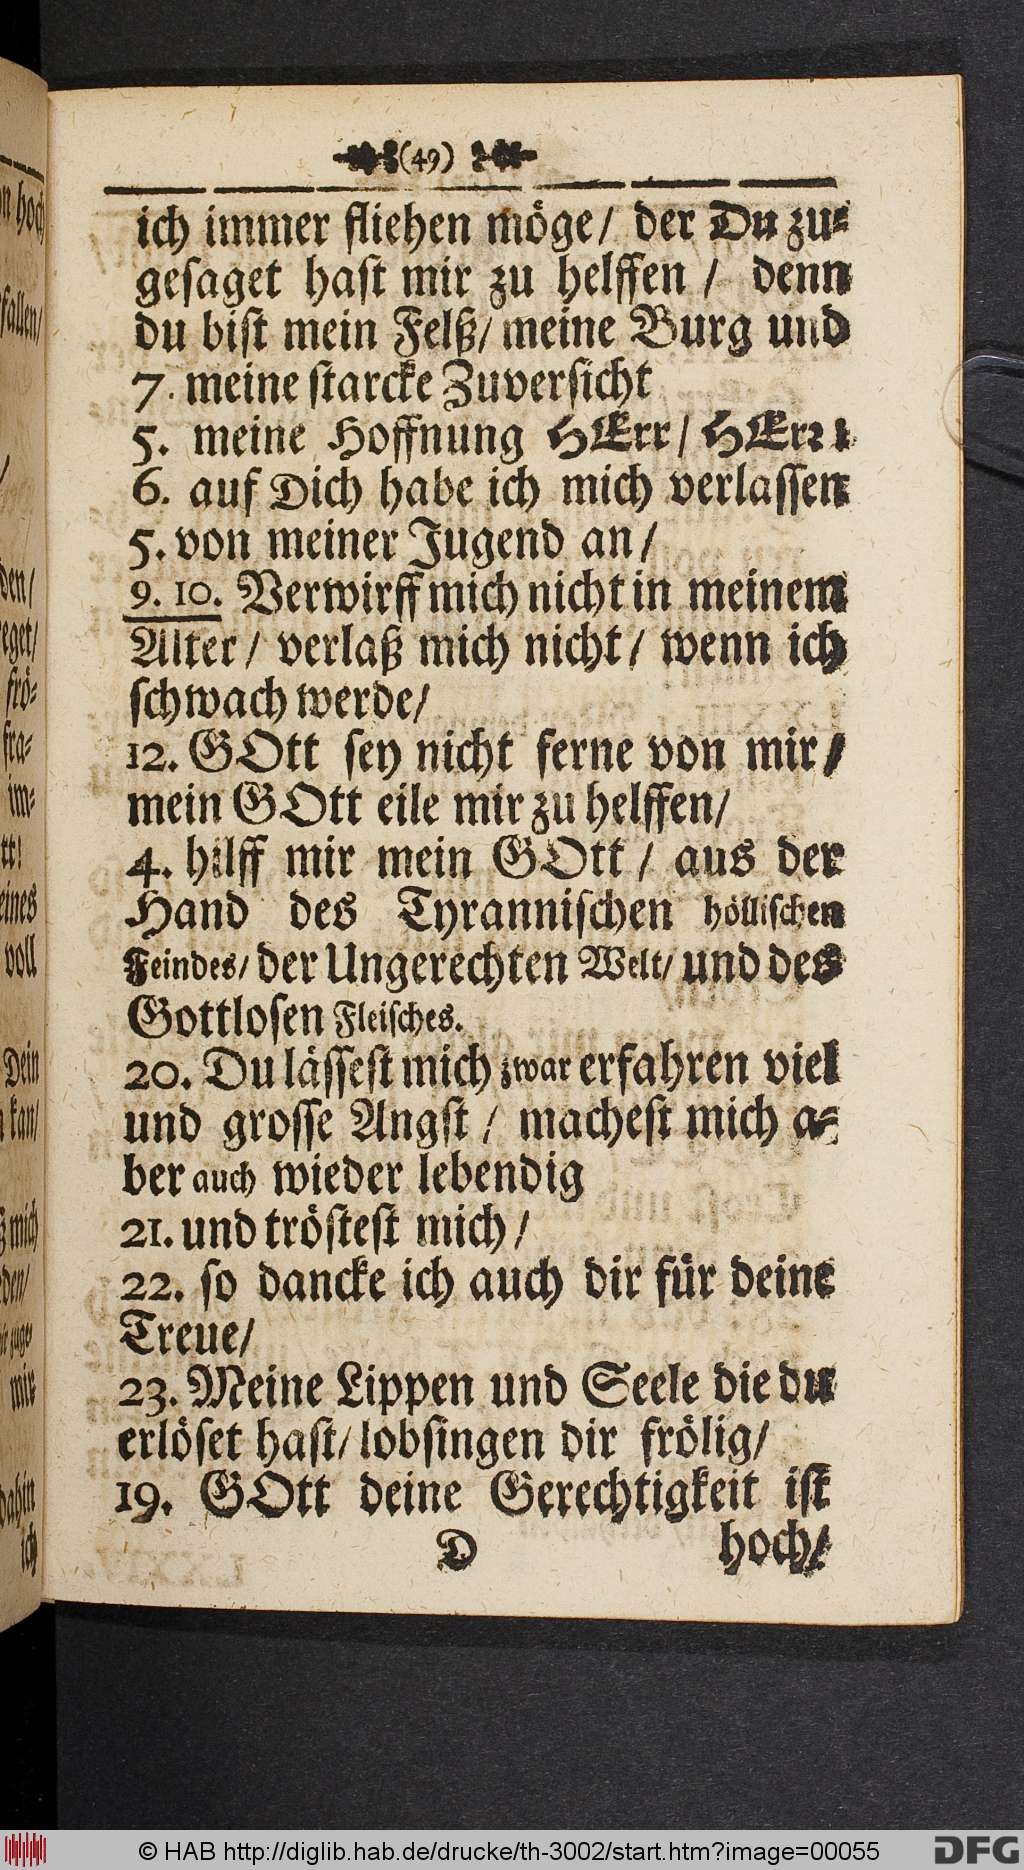 (49)
ich immer fliehen möge/ der Du zu⸗
gesaget hast mir zu helffen / denn
du bist mein Felß/ meine Burg und
7. meine starcke Zuversicht
5. meine Hoffnung HErr/ HErr!
6. auf Dich habe ich mich verlassen
5. von meiner Jugend an/
9. 10. Verwirff mich nicht in meinem
Alter/ verlaß mich nicht/ wenn ich
schwach werde/
12. GOtt sey nicht ferne von mir/
mein GOtt eile mir zu helffen/
4. hilff mir mein GOtt / aus der
Hand des Tyrannischen höllischen
Feindes/ der Ungerechten Welt/ und des
Gottlosen Fleisches.
20. Du lässest mich zwar erfahren viel
und grosse Angst / machest mich a⸗
ber auch wieder lebendig
21. und tröstest mich/
22. so dancke ich auch dir für deine
Treue/
23. Meine Lippen und Seele die du
erlöset hast/ lobsingen dir frölig/
19. GOtt deine Gerechtigkeit ist
D hoch/
© HAB http://diglib.hab.de/drucke/th-3002/start.htm?image=00055
DFG